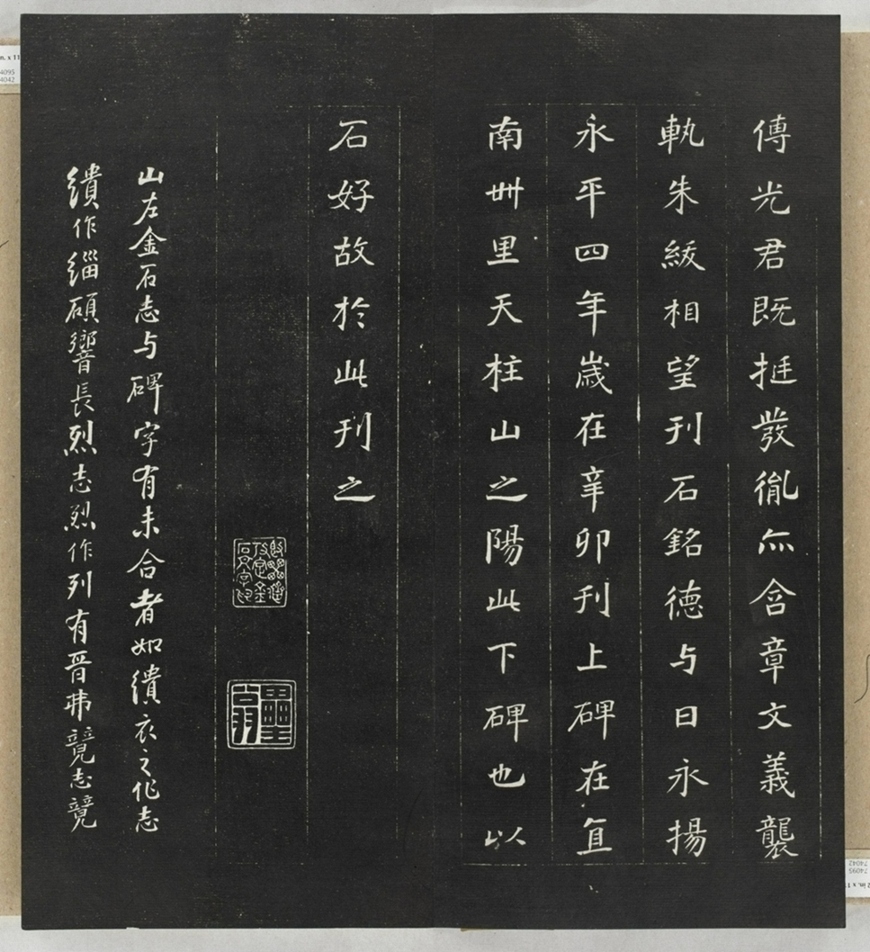 傳光君既挺發胤亦含章文義襲
軌朱紱相望刊石銘德与日永揚
永平四年歲在辛卯刊上碑在直
南卌里天柱山之陽此下碑也以
石好故於此刊之
山左金石志与碑字有未合者如繢衣之作志
繢作緇碩響長烈志烈作列有晉弗競志競